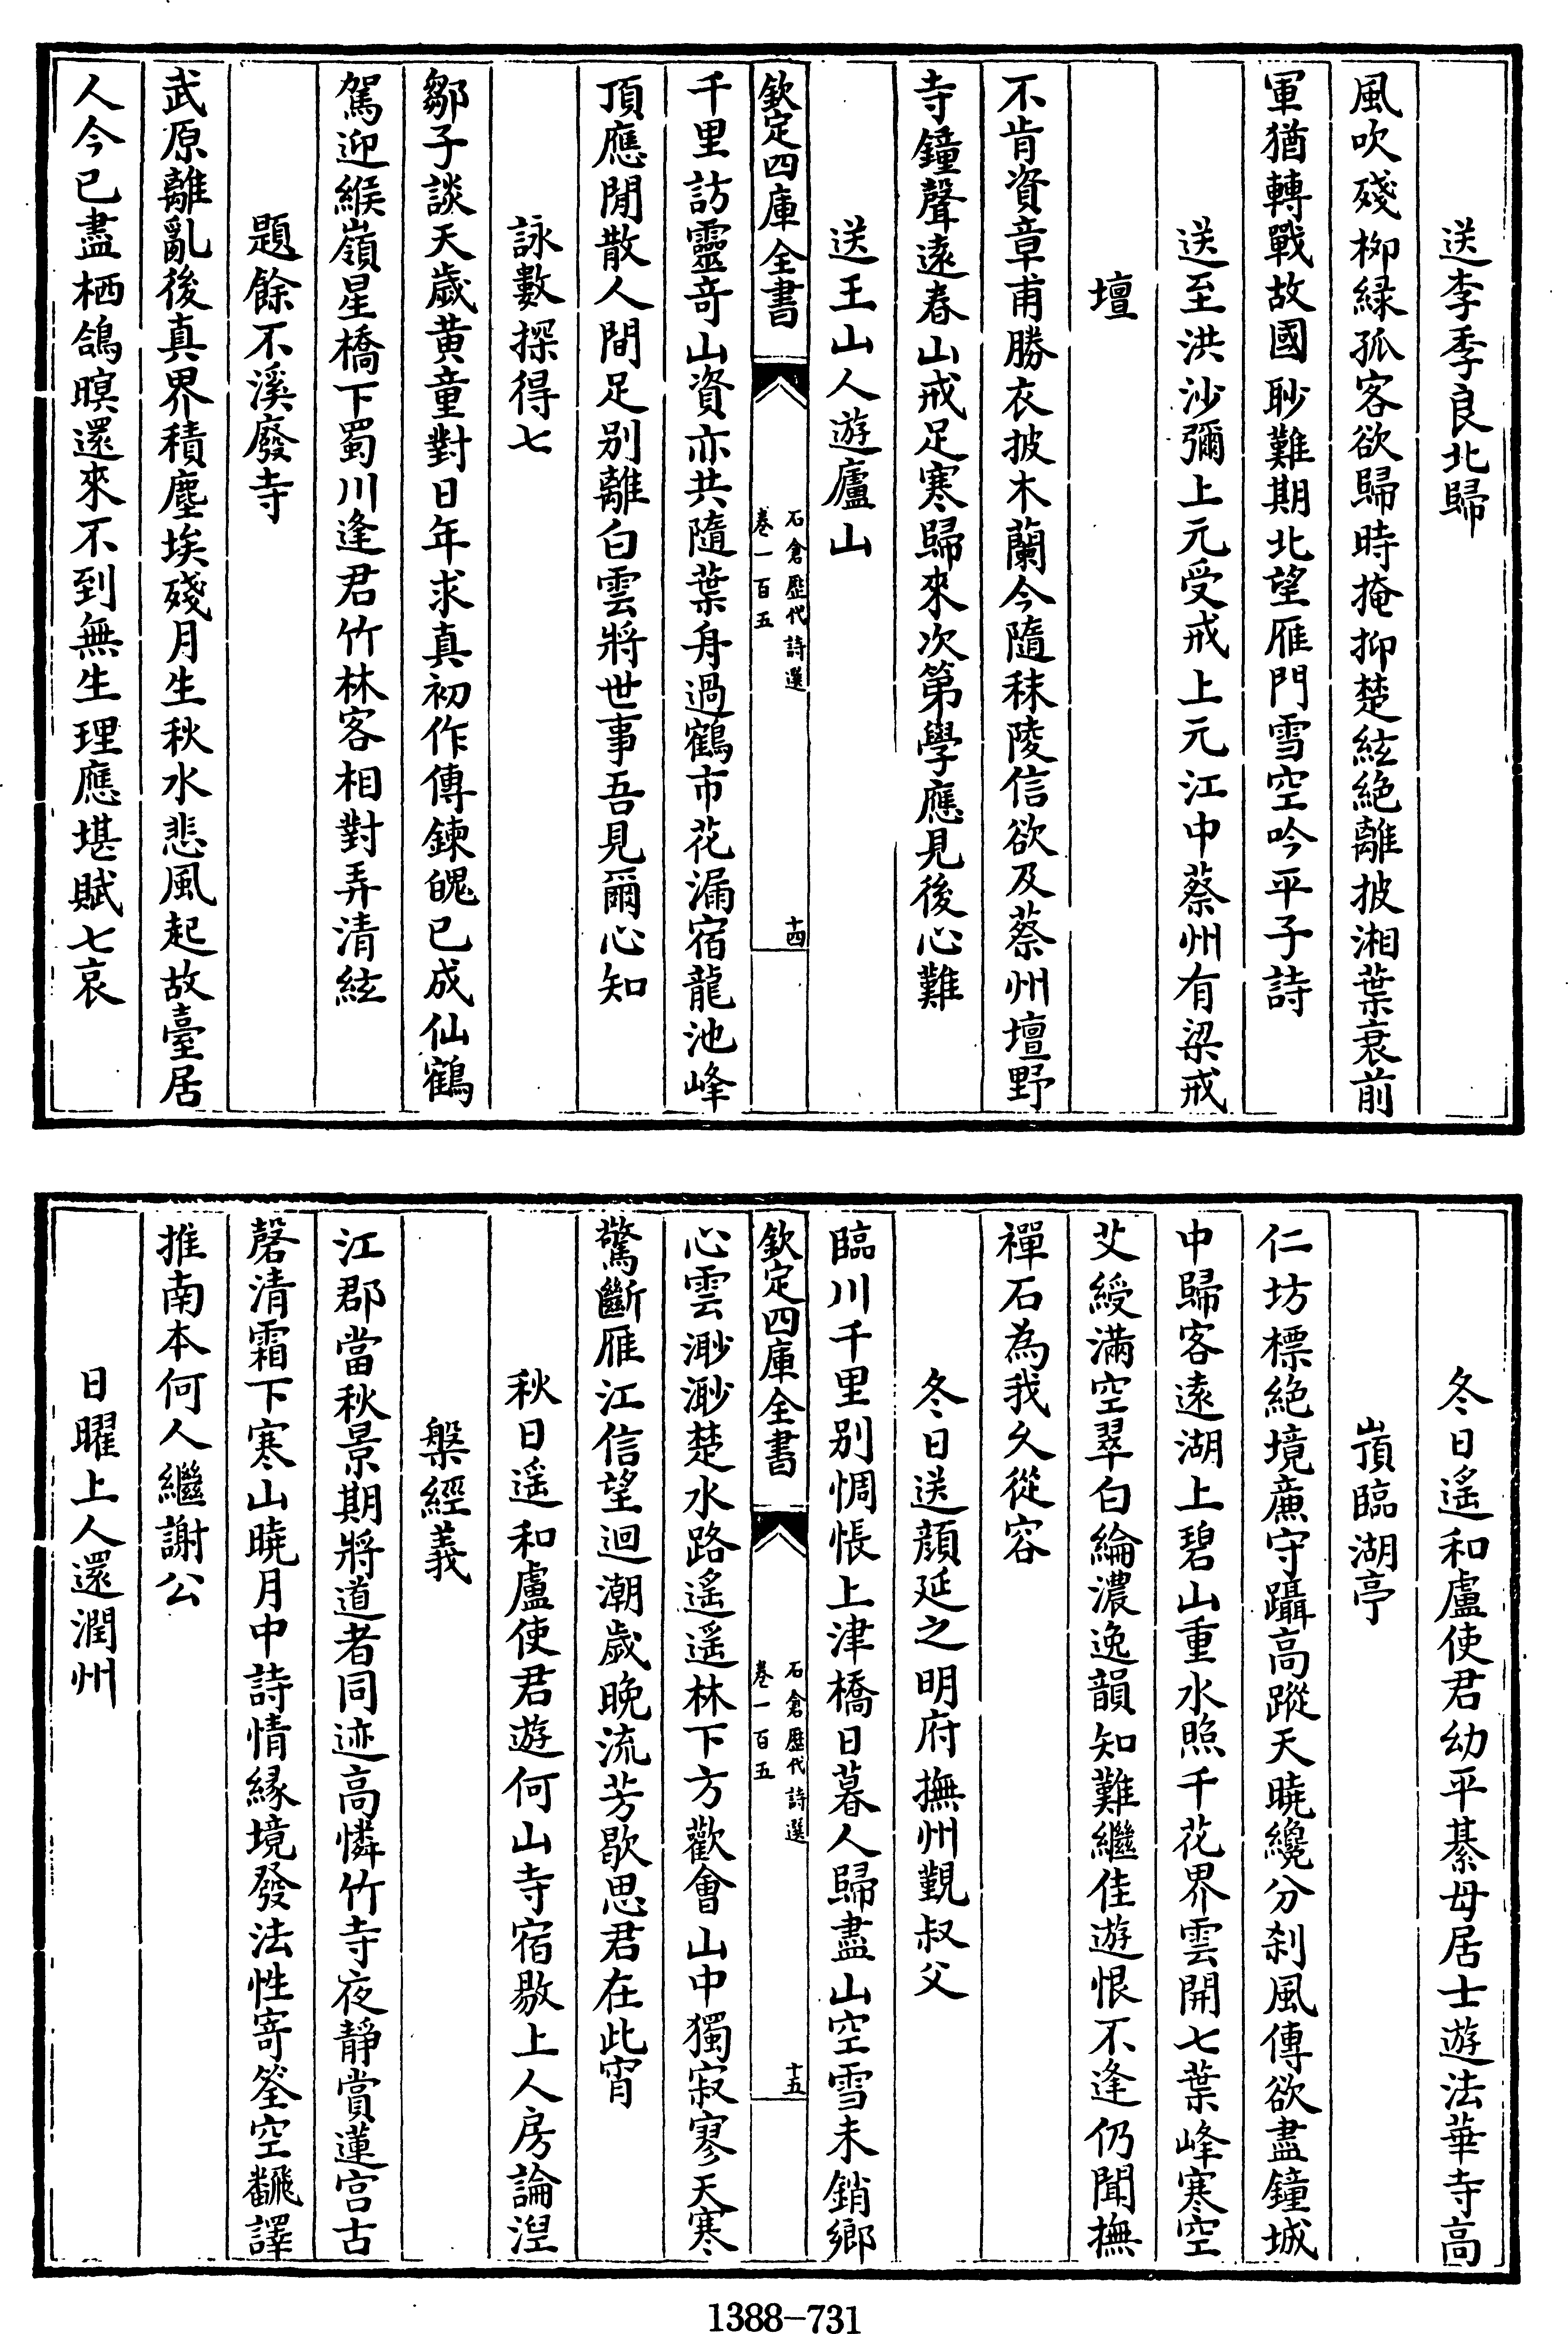 送李季良北歸
風吹殘柳緑孤客欲歸時掩抑楚絃絶離披湘葉衰前
軍猶轉戰故國眇難期北望雁門雪空吟平子詩
送至洪沙彌上元受戒上元江中蔡州有梁戒
壇
不肯資章甫勝衣披木蘭今隨秣陵信欲及蔡州壇野
寺鐘聲遠春山戒足寒歸來次第學應見後心難
送王山人遊廬山
欽定四庫全書
石倉歷代詩選
卷一百五
十四
千里訪靈竒山資亦共隨葉舟過鶴市花漏宿龍池峰
頂應閒散人間足别離白雲將世事吾見爾心知
詠數探得七
鄒子談天歲黄童對日年求真初作傳鍊魄已成仙鶴
駕迎緱嶺星橋下蜀川逢君竹林客相對弄清絃
題餘不溪廢寺
武原離亂後真界積塵埃殘月生秋水悲風起故臺居
人今已盡栖鴿暝還來不到無生理應堪賦七哀
冬日遥和盧使君幼平綦毋居士遊法華寺高
頂臨湖亭
仁坊標絶境亷守躡高蹤天曉纔分刹風傳欲盡鐘城
中歸客遠湖上碧山重水照千花界雲開七葉峰寒空
艾綬滿空翠白綸濃逸韻知難繼佳遊恨不逢仍聞撫
禪石為我久從容
冬日送顔延之明府撫州覲叔父
臨川千里别惆悵上津橋日暮人歸盡山空雪未銷鄉
欽定四庫全書
石倉歷代詩選
卷一百五
十五
心雲渺渺楚水路遥遥林下方歡會山中獨寂寥天寒
驚斷雁江信望迴潮歲晚流芳歇思君在此宵
秋日遥和盧使君遊何山寺宿敭上人房論湼
槃經義
江郡當秋景期將道者同迹高憐竹寺夜靜賞蓮宫古
磬清霜下寒山曉月中詩情緣境發法性寄筌空飜譯
推南本何人繼謝公
日曜上人還潤州
1388-731